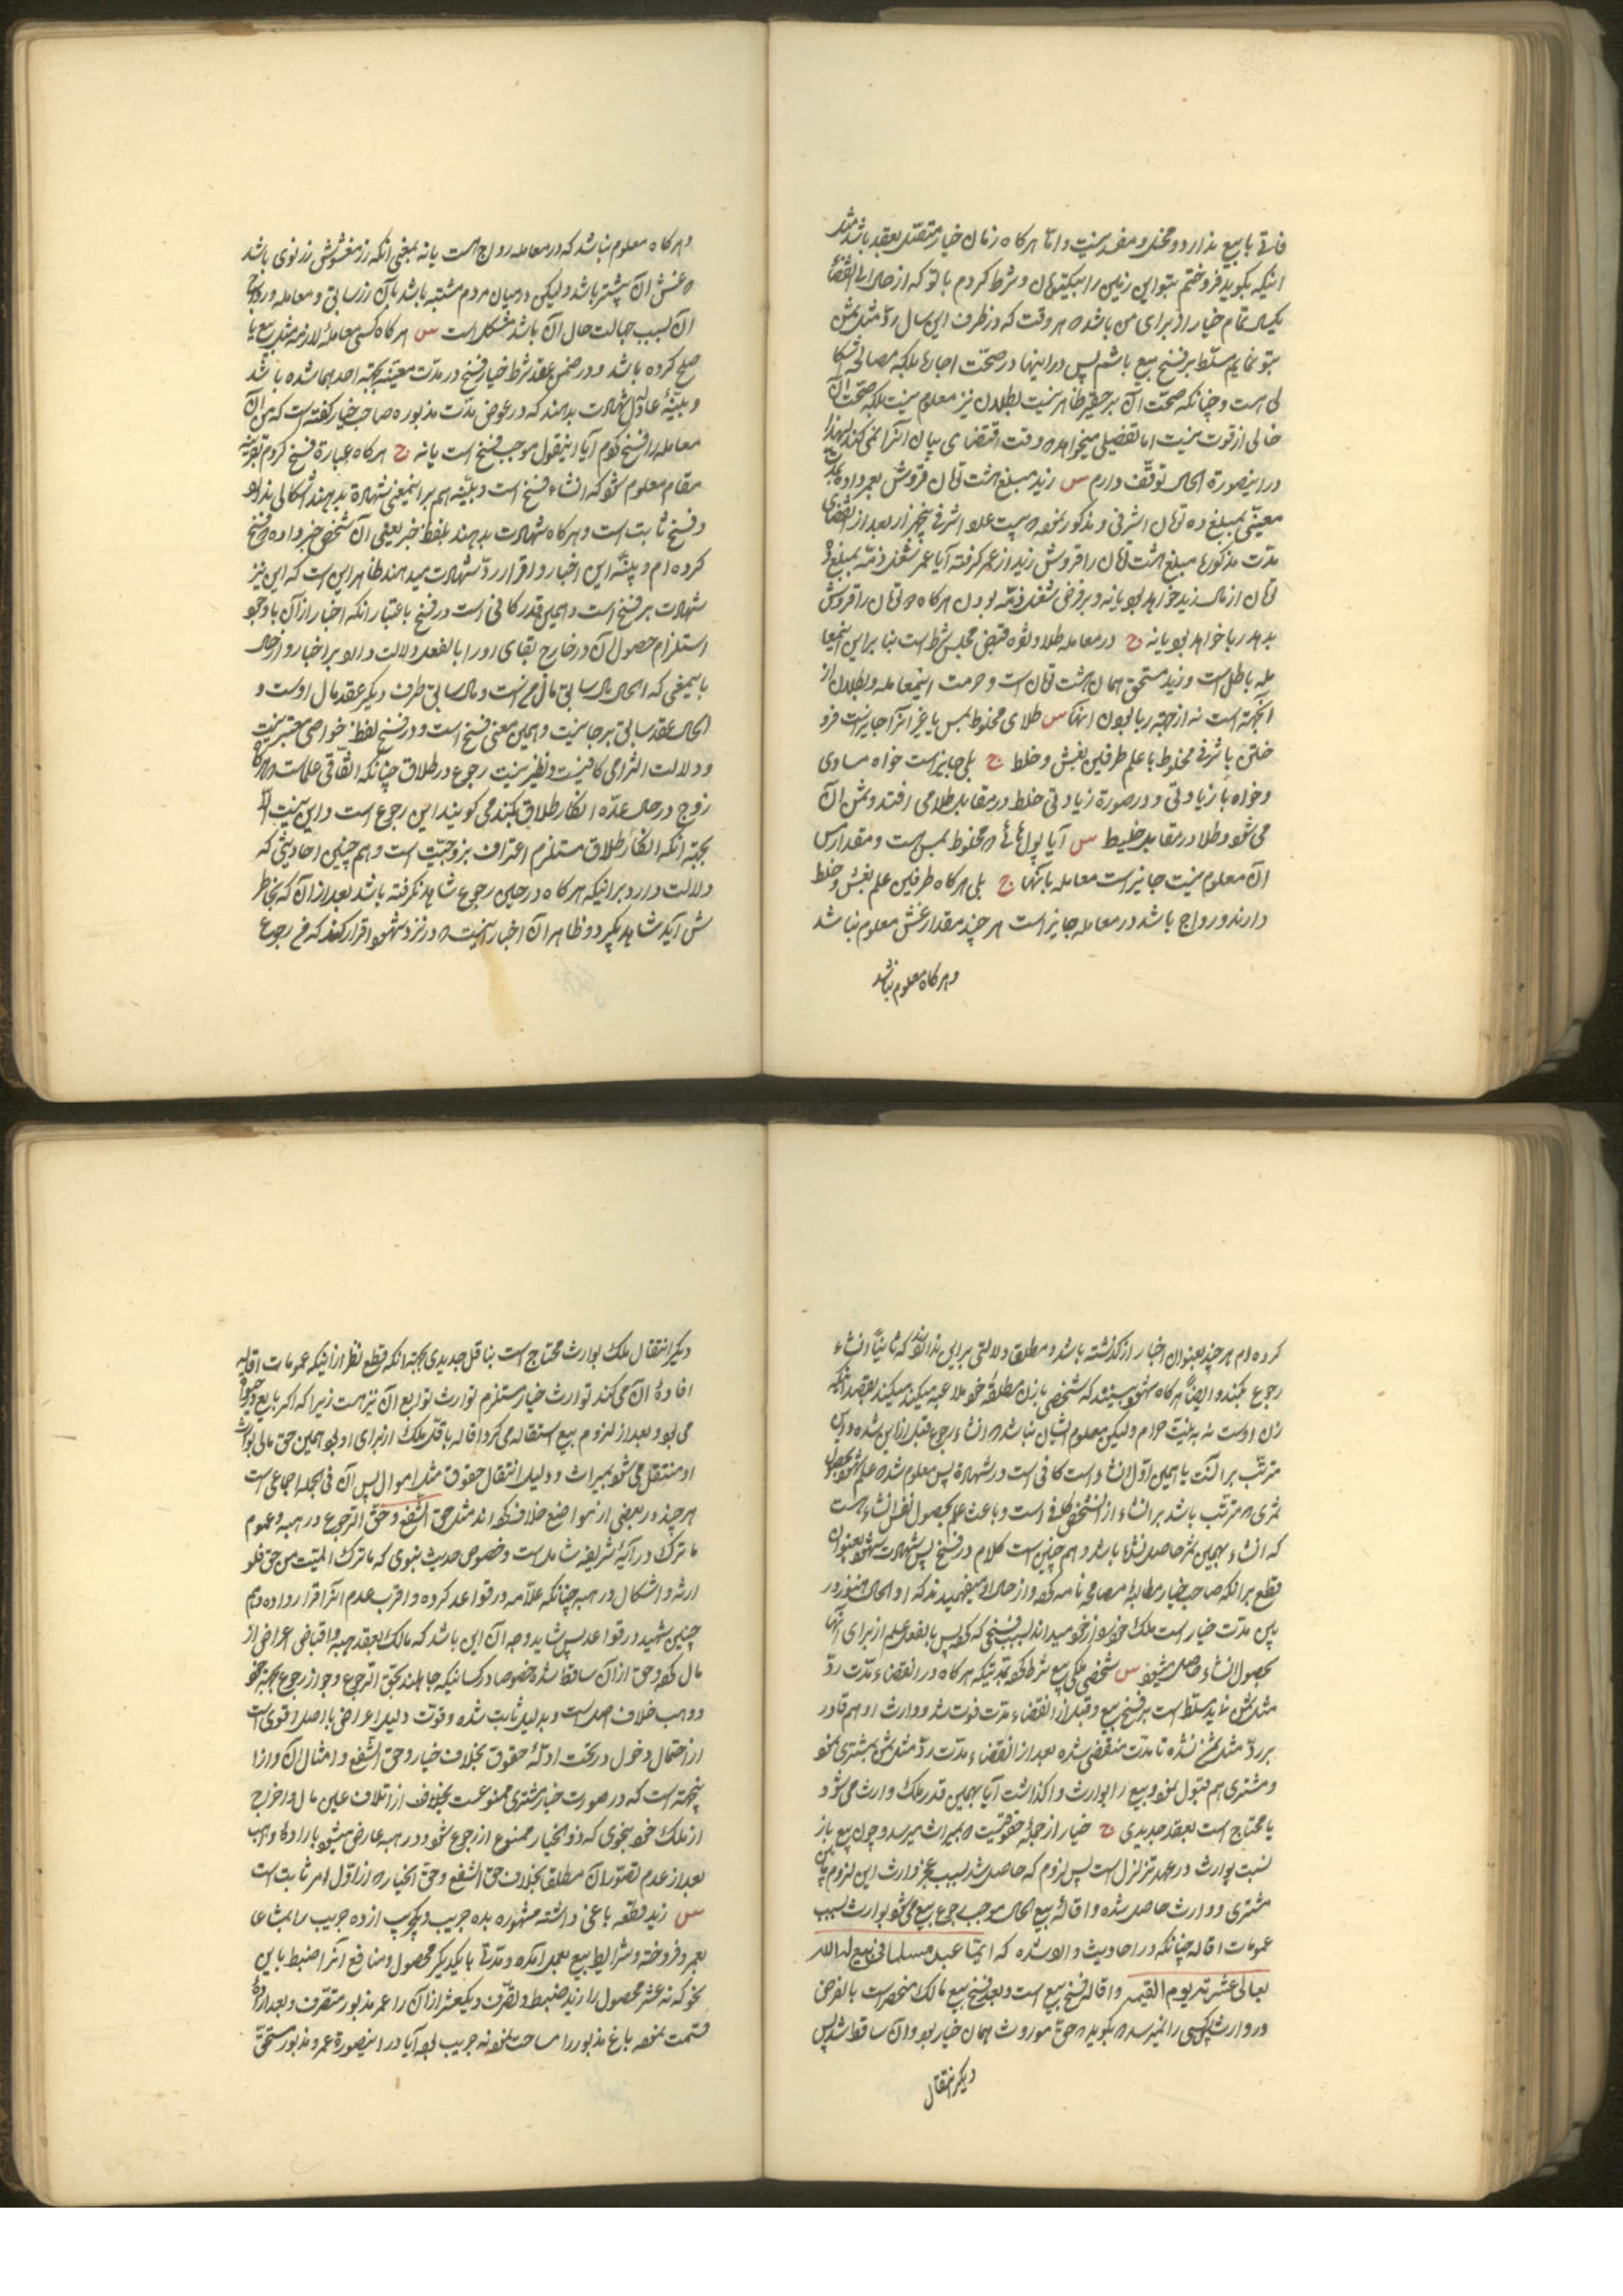 فارقی با بیع ندارد و مخل و مفسد نیست و اما هر کاه زمان خیار متصل بعقد باشد مثل
اینکه بکوید فروختم بتو این زمین را بیکتومان و شرط کردم با تو که از حال الی انقضاء
یکسال تمام خیار از برای من باشد که هر وقت که در ظرف این سال رد مثل ثمن
بتو نمایم مسلط بر فسخ بیع باشم پس در اینها در صحت اجاره بلکه مصالحه اشکا
لی هست و چنانکه صحت آن بر حقیر ظاهر نیست بطلان نیز معلوم نیست بلکه صحت آن
خالی از قوت نیست اما تفصیلی میخواهد که وقت اقتضای بیان آنرا نمی کند لهذا
در اینصورة الحال توقف دارم س زید مبلغ هشت تومان قروش بعمرو داده
معینی بمبلغ ده تومان اشرفی و مذکور نموده اشرفی پنجهزار بعد از انقضای
مدت مذکوره مبلغ هشت تومان را قروش زید از عمرو کرفته آیا عمرو مشغل ذمه بمبلغ دو
تومان از مال زید خواهد بود یا نه و بر فرض شغل ذمه بودن هر کاه تومان را قروش
بدهد ربا خواهد بود یا نه ج در معامله طلا و نقره قبض مجلس شرط است بنا بر این اینمعا
مله باطل است و زید مستحق همان هشت تومان است و حرمت اینمعامله و بطلان از
انجهته است نه از جهته ربا بودن انها س طلای مخلوط بمس یا غیر انرا جایز است فرو
ختن باشرفی مخلوط با علم طرفین بغش و خلط ج بلی جایز است خواه مساوی
و خواه با زیادتی و در صورة زیادتی خلط در مقابل طلا می افتد و ثمن آن
می شود و طلا در مقابل خلیط س آیا پول هائی که مخلوط بمس است و مقدار مس
ان معلوم نیست جایز است معامله بانها ج بلی هر کاه طرفین علم بغش و خلط
دارند و رواج باشد در معامله جایز است هر چند مقدار غش معلوم نباشد
و هر کاه معلوم نباشد
و هر کاه معلوم نباشد که در معامله رواج هست یا نه بمعنی انکه زر مغشوش زر نوی باشد
که غش آن بیشتر باشد ولیکن در میان مردم مشتبه باشد بان زر سابق و معامله و رواج
آن بسبب جهالت حال آن باشد مشکل است س هر کاه کسی معامله لازمه مثل بیع یا
صلح کرده باشد و در ضمن عقد شرط خیار فسخ در مدت معینه بجهته احدهما شده باشد
و بینه عادل شهادت بدهند که در عرض مدت مذبوره صاحب خیار کفته است که من آن
معامله را فسخ کردم آیا اینقول موجب فسخ است یا نه ج هر کاه عبارة فسخ کردم بقرینه
مقام معلوم شود که انشاء فسخ است و بینه هم بر اینمعنی شهادة بدهند اشکالی ندارد
و فسخ ثابت است و هر کاه شهادت بدهند بلفظ خبر یعنی آن شخص خبر داده که فسخ
کرده ام و بینه این اخبار و اقرار رد شهادت میدهند ظاهر این است که این نیز
شهادت بر فسخ است و همین قدر کافی است در فسخ باعتبار انکه اخبار از آن با وجود
استلزام حصول آن در خارج بقای او را بالفعل دلالت دارد بر اخبار و از حال
باینمعنی که الحال مال سابق مال من است و مال سابق طرف دیکر عقد مال اوست و
الحال عقد سابق بر جا نیست و همین معنی فسخ است و در فسخ لفظ خواصی معتبر نیست
و دلالت التزامی کافیست و نظیر نیست رجوع در طلاق چنانکه اتفاقی علماست که هر کاه
زوج در حال عده انکار طلاق بکند می کویند این رجوع است و این نیست الا
بجهته انکه انکار طلاق مستلزم اعتراف بزوجیت است و هم چنین احادیثی که
دلالت دارد بر اینکه هر کاه در حین رجوع شاهد نکرفته باشد بعد از آن که بخاطر
ش آید شاهد بکیرد و ظاهر آن اخبار اینست که در نزد شهود اقرار کند که من رجوع
کرده ام هر چند بعنوان اخبار از کذشته باشد و مطلقا دلالتی بر این ندارند که ثانیا انشاء
رجوع بکند و ایضا هر کاه شهود ببینند که شخصی با زن مطلقه خود ملاعبه میکند میکند بقصد اینکه
زن اوست نه به نیت حرام ولیکن معلوم ایشان نباشد که انشاء رجوع قبل از این شده و این
مترتب بر آنست یا همین اول انشاء است کافی است در شهادة پس معلوم شد که علم شهود بحصول
ثمری که مترتب باشد بر انشاء از آنشخص کافی است و باعث علم بحصول نفس انشاء هست
که انشاء بهمین نیز حاصل شده باشد و هم چنین است کلام در فسخ پس شهادت شهود بعنوان
قطع بر انکه صاحب خیار مطالبه مصالحه نامه کرد و از حال او میفهمیدند که او الحال هنوز در
بین مدت خیار است ملک خود را از خود میداند بسبب فسخی که کرد پس بالفعل علم از برای آنها
بحصول انشاء حاصل میشود س شخصی ملکی بیع شرط کرد بمدتیکه هر کاه در انقضاء مدت رد
مثل ثمن نماید مسلط است بر فسخ بیع و قبل از انقضاء مدت فوت شد و وارث او هم قادر
بر رد مثل ثمن نشده تا مدت منقضی شده بعد از انقضاء مدت رد مثل ثمن بمشتری نمود
و مشتری هم قبول نمود و بیع را بوارث واکذاشت آیا بهمین قدر ملک وارث می شود
یا محتاج است بعقد جدیدی ج خیار از جمله حقوقیست که بمیراث میرسد و چون بیع باز
نسبت بوارث در عهد تزلزل است پس لزوم که حاصل شد بسبب عجز وارث این لزوم ما بین
مشتری و وارث حاصل شده و اقاله بیع الحال موجب رجوع بیع می شود بوارث بسبب
عمومات اقاله چنانکه در احادیث وارد شده که ایما عبد مسلما فی بیع اقاله الله
تعالی عشرته یوم القیمه و اقاله فسخ بیع است و بعد فسخ بیع مالک منحصر است بالفرض
در وارث پس کسی را نمیرسد که بکوید که حق موروث همان خیار بود و آن ساقط شد پس
دیکر انتقال
دیکر انتقال ملک بوارث محتاج است بناقل جدیدی بجهته انکه قطع نظر از اینکه عمومات اقاله
افادهٔ آن می کند توارث خیار مستلزم توارث توابع آن نیز هست زیرا که اکر بایع در حیوة
می بود و بعد از لزوم بیع استقاله می کرد اقاله ناقل ملک از برای او بود همین حق مالی بوارث
او منتقل می شود بمیراث و دلیل انتقال حقوق مثل اموال پس آن فی الجمله اجماعی است
هر چند در بعضی از مواضع خلاف کرده اند مثل حق الشفع و حق الرجوع در هبه و عموم
ما ترک در آیه شریفه شامل است و خصوص حدیث نبوی که ما ترک المیت من حق فلو
ارثه و اشکال در هبه چنانکه علامه در قواعد کرده و اقرب عدم انرا قرار داده و هم
چنین شهید در قواعد پس شاید وجه آن این باشد که مالک بعقد هبه و اقباض اعراض از
مال کرده و حق از آن ساقط شده خصوصا در کسانیکه جاهلند بحق الرجوع و جواز رجوع بجهة خود
و واهب خلاف اصل است و بدلیل ثابت شده و قوت دلیل اعراض با اصل اقوی است
از احتمال دخول در تحت ادلهٔ حقوق بخلاف خیار و حق الشفع و امثال آن و از ا
ینجهته است که در صورت خیار مشتری ممنوعست بخلاف از اتلاف عین مال و اخراج
از ملک خود بنحوی که ذو الخیار ممنوع از رجوع شود و در هبه عارض میشود بارادهٔ واهب
بعد از عدم تصور آن مطلقا بخلاف حق الشفع و حق الخیار که از اول امر ثابت است
س زید قطعه باغی داشته مشهوره بده جریب دو جریب از ده جریب را بمشاعا
بعمرو فروخته و شرایط بیع بعمل آمده و مدتی با یکدیکر محصول و منافع آنرا ضبط باین
نحو که نه عشر محصول را زید ضبط و تصرف و یکعشر از آن را عمرو مذبور متصرف و بعد ارادهٔ
قسمت نموده باغ مذبور را مساحت نموده نه جریب بوده آیا در اینصورة عمرو مذبور مستحق